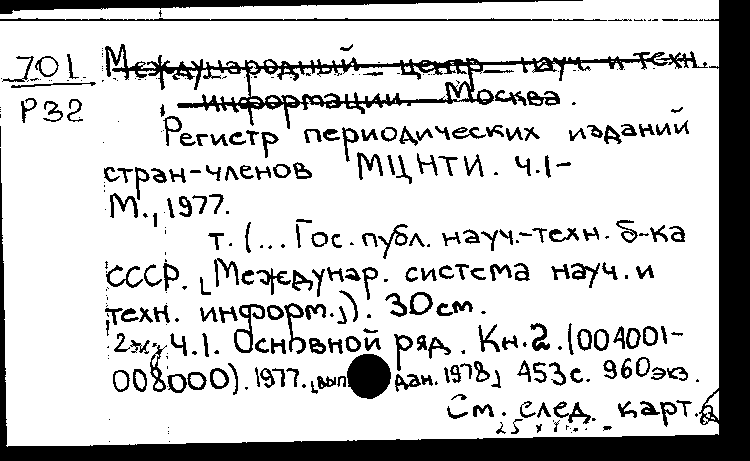 701
Р32
Международный центр науч. и техн.
информации. Москва.
Регистр периодических изданий
стран-членов МЦНТИ. Ч.1-
М., 1977.
т. (... Гос. публ. науч.-техн. б-ка
СССР. [Междунар. система науч. и
техн. информ.]). 30 см.
Ч.1. Основной ряд. Кн.2. (004001-
008000). 1977. [вып. дан. 1978] 453 с. 960 экз.
См. след. карт.